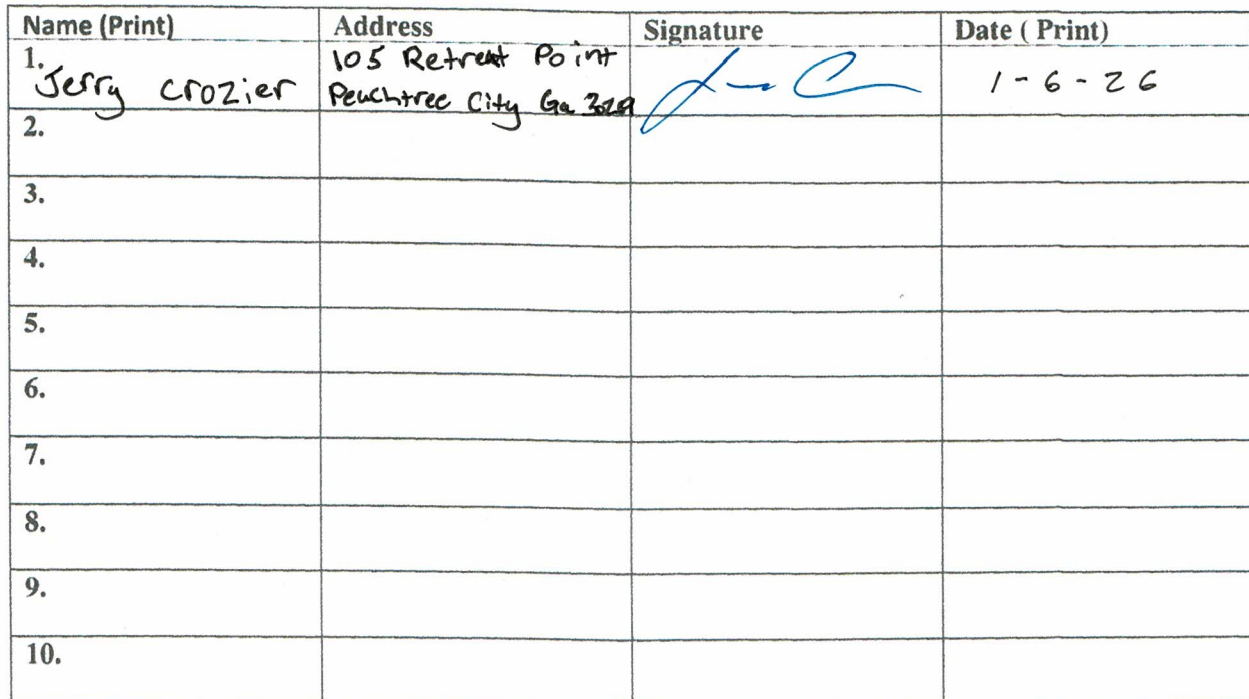 Name (Print) Address Signature Date ( Print)
1. Jerry Crozier 105 Retreat Point 1-6-26
Peachtree City Ga
2.
3.
4.
5.
6.
7.
8.
9.
10.